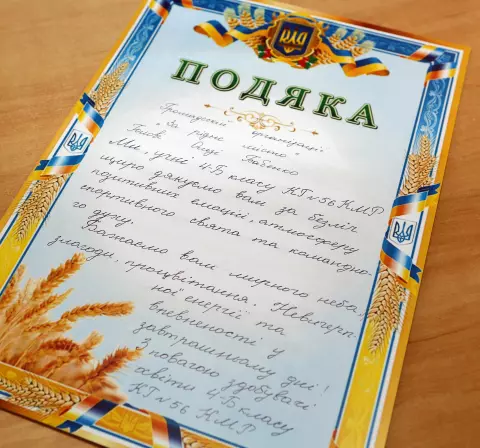 ПОДЯКА
Громадській організації
"За рідне місто"
Голові Бабенко
Ми, учні 4-Б класу КГ№56 КМР
щиро дякуємо вам за безліч
позитивних емоцій, атмосферу
спортивного свята та командно-
го духу.
Бажаємо вам мирного неба,
злагоди, процвітання, невичерп-
ної енергії та
впевненості у
завтрашньому дні!
З повагою здобувачі
освіти 4-Б класу
КГ№56 КМР